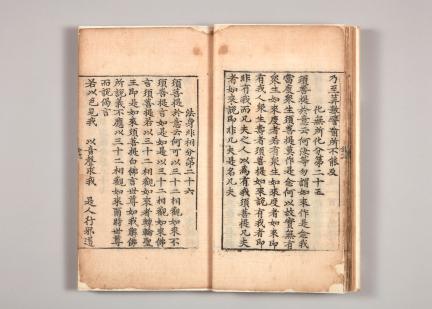 乃至算數譬喻所不能及
化無所化分第二十五
須菩提於意云何汝等勿謂如來作是念我
當度衆生須菩提莫作是念何以故實無有
衆生如來度者若有衆生如來度者如來即
有我人衆生壽者須菩提如來說有我者即
非有我而凡夫之人以爲有我須菩提凡夫
者如來說即非凡夫是名凡夫
法身非相分第二十六
須菩提於意云何可以三十二相觀如來不
須菩提言如是如是以三十二相觀如來佛
言須菩提若以三十二相觀如來者轉輪聖
王即是如來須菩提白佛言世尊如我解佛
所說義不應以三十二相觀如來爾時世尊
而說偈言
若以色見我 以音聲求我 是人行邪道